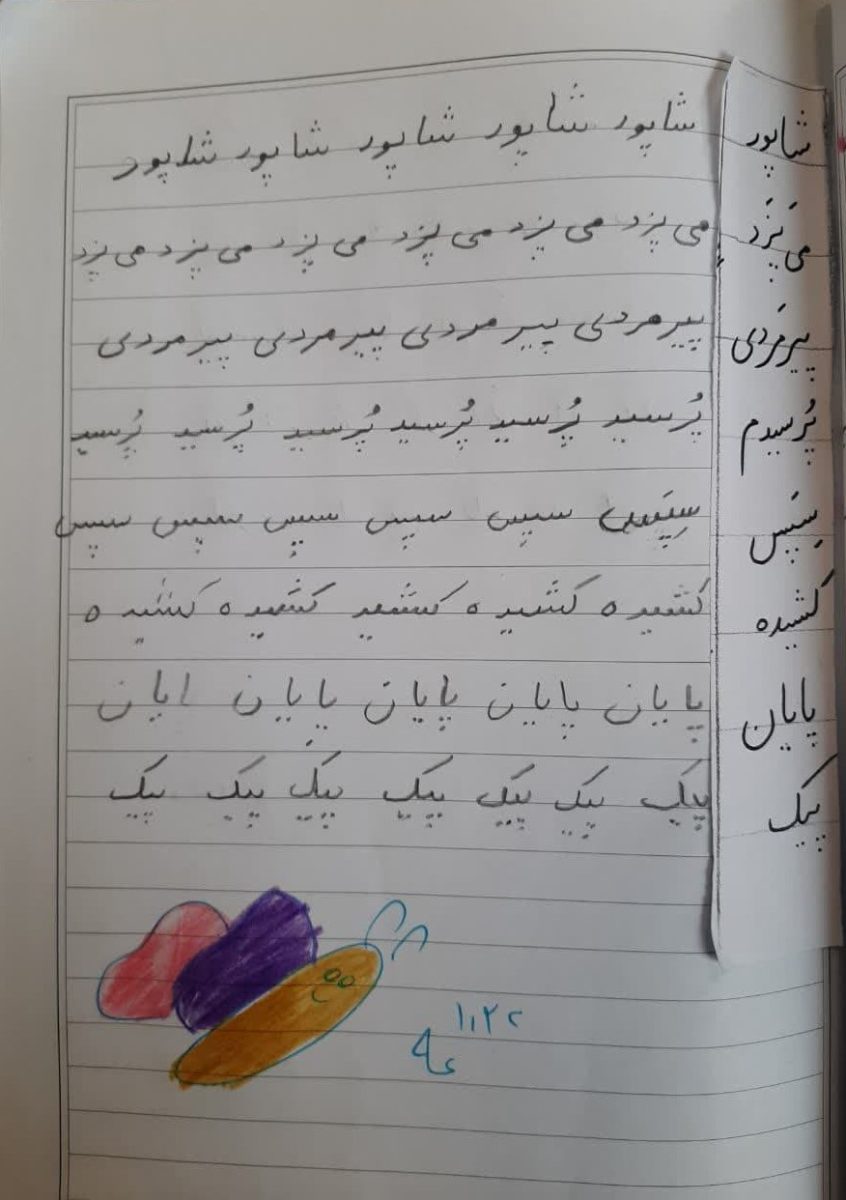 شاپور شاپور شاپور شاپور شاپور شاپور
می پَزَد می پزد می پزد می پزد می پزد می پزد می پزد
پیرمَردی پیرمردی پیرمردی پیرمردی پیرمردی
پُرسیدم پُرسید پُرسید پُرسید پُرسید پُرسید پُرسید
سِپَس سِپَس سپس سپس سپس سپس سپس
کشیده کشیده کشیده کشیده کشیده کشیده
پایان پایان پایان پایان پایان ایان
پیک پیک پیک پیک پیک پیک پیک پیک